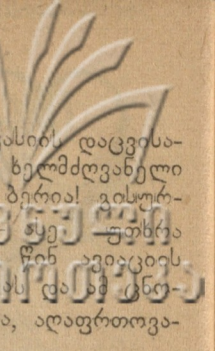 ასიის დაცვისა-
ხელმძღვანელი
ბერია! გისურ-
ასე უთხრა
წინ ავიაციის
ას და ამ ცნო-
ა, აღაფრთოვა-